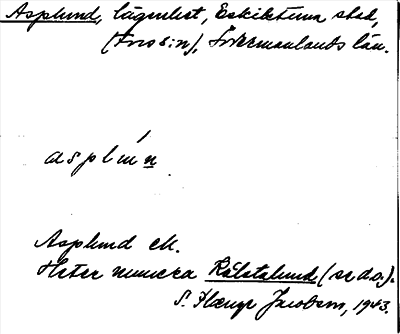 Asplund, lägenhet, Eskilstuna stad,
(Fors s:n), Södermanlands län.
asplún̲
Asplund ck.
Heter numera Rålstalund (se d.o.).
S. Jacobson, 1943.